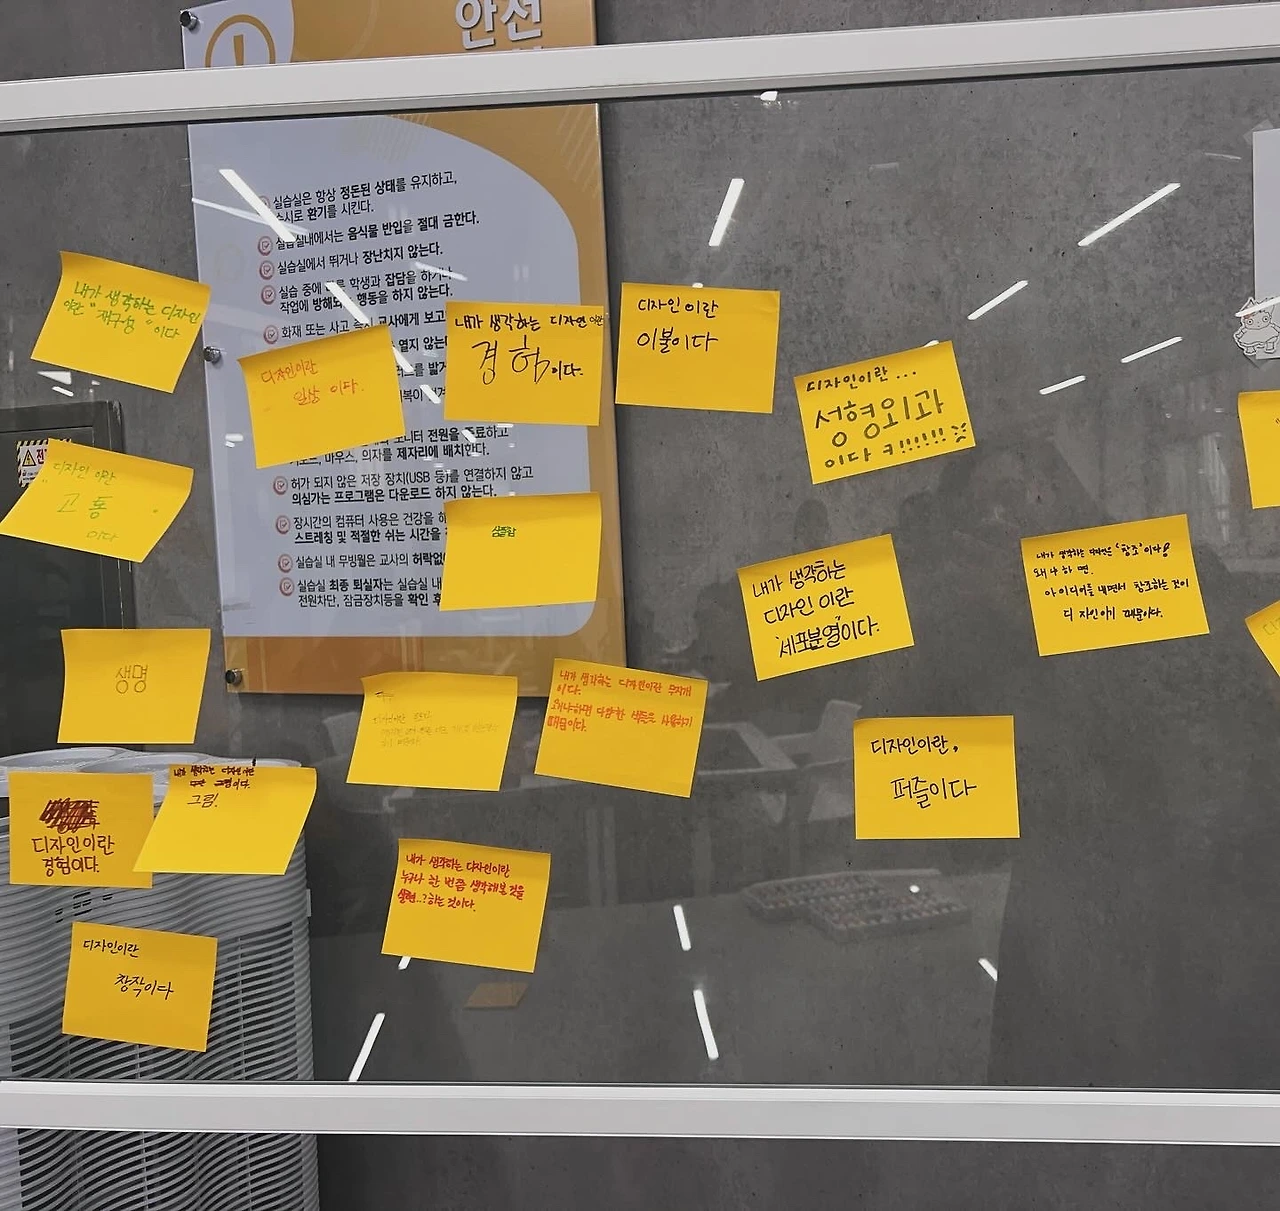 안전
실습실은 항상 정돈된 상태를 유지하고,
수시로 환기를 시킨다.
실습실내에서는 음식물 반입을 절대 금한다.
실습실에서 뛰거나 장난치지 않는다.
실습 중에 학생과 잡담을 하거나
작업에 방해되는 행동을 하지 않는다.
화재 또는 사고 즉시 교사에게 보고
열지 않는다
모니터 전원을 종료하고
키보드, 마우스, 의자를 제자리에 배치한다.
허가 되지 않은 저장 장치(USB 등)를 연결하지 않고
의심가는 프로그램은 다운로드 하지 않는다.
장시간의 컴퓨터 사용은 건강을
스트레칭 및 적절한 쉬는 시간을
실습실 내 무방월은 교사의 허락없
실습실 최종 퇴실자는 실습실 내
전원차단, 잠금장치등을 확인 후
내가 생각하는 디자인
이란 "재구성"이다
디자인이란
일상 이다.
내가 생각하는 디자인 이란
경험이다.
디자인이란
이불이다
디자인이란...
성형외과
이다 ㅋiiiiiii
디자인 이란
고통
이다
내가 생각하는
디자인 이란
"세포분열"이다.
내가 생각하는 디자인은 '창조'이다!
왜냐하면.
아이디어를 내면서 창조하는 것이
디자인이기 때문이다.
생명
내가 생각하는 디자인이란 무지개
이다.
왜냐하면 다양한 색들을 사용하기
때문이다.
디자인이란,
퍼즐이다
디자인이란
경험이다.
내가 생각하는 디자인이란
그림이다.
그림.
내가 생각하는 디자인이란
누구나 한 번쯤 생각해볼 것을
실현..?하는 것이다.
디자인이란
창작이다